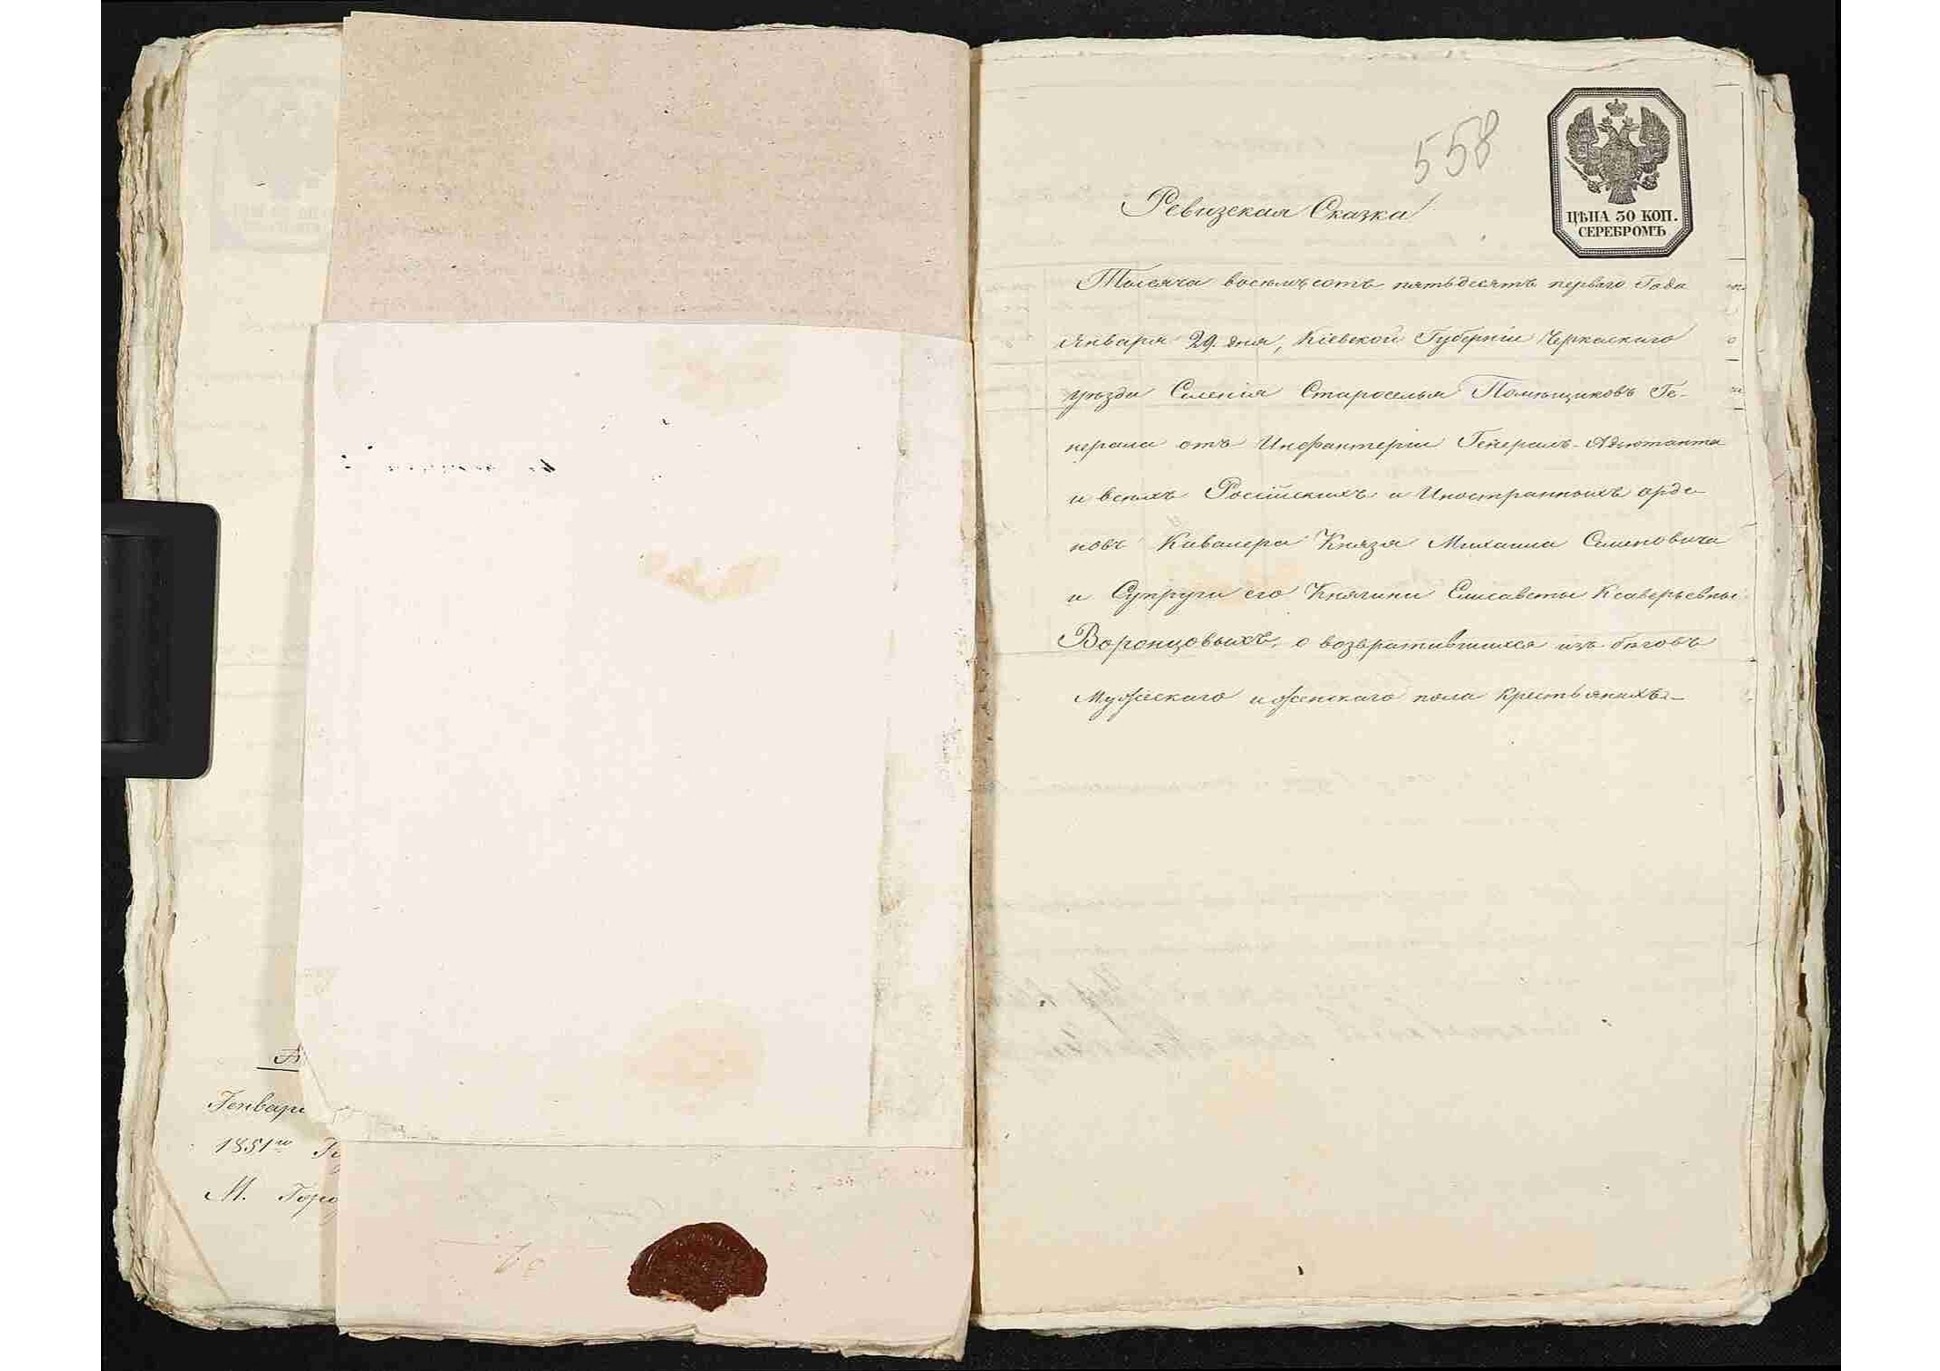 Генвар
1851го
М. Горо
558
ЦѢНА 30 КОП.
СЕРЕБРОМЪ
Ревизская Сказка
Тысяча восемьсотъ пятьдесятъ перваго Года
Января 29. дня, Кіевской Губерніи Черкаскаго
уѣзда Селенія Староселья Помѣщиковъ Ге-
нерала отъ Инфантеріи Генералъ-Адьютанта
и всѣхъ Россійскихъ и Иностранныхъ орде-
новъ Кавалера Князя Михаила Семеновича
и Супруги его Княгини Елисаветы Ксаверьевны
Воронцовыхъ, о возвратившихся изъ бѣговъ
Мужескаго и женскаго пола крестьянахъ.